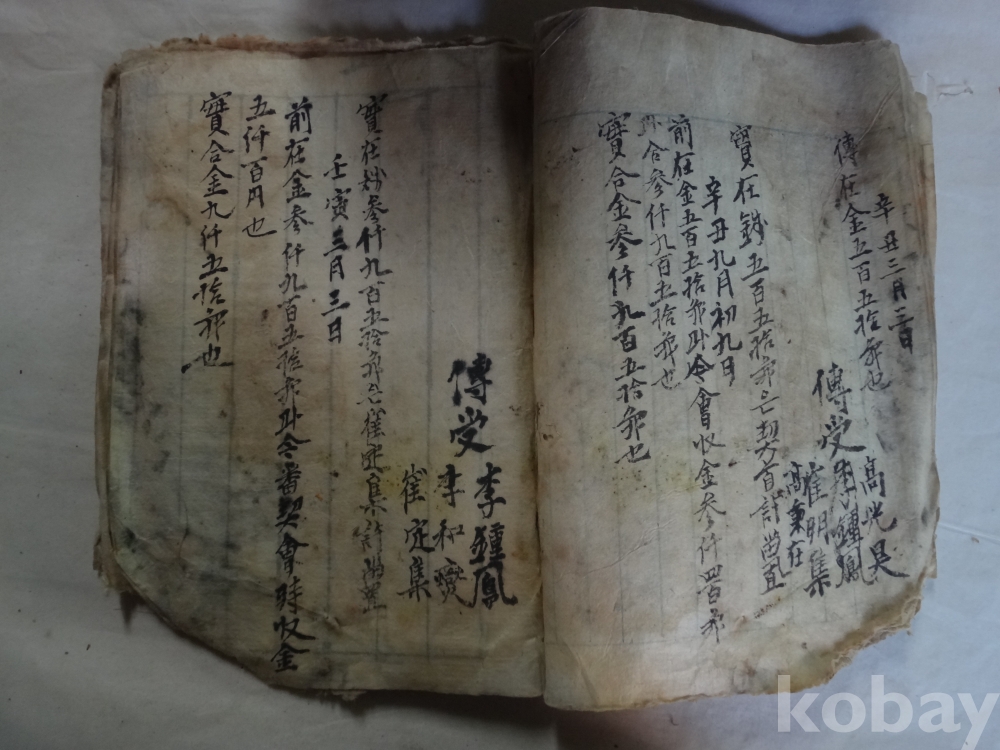 辛丑三月三日
傳在金五百五拾郍也
傳受 高光昊
李鍾鳳
崔明集
高秉在
實在錢五百五拾郍亡契首計
辛丑九月初九日
前在金五百五拾郍卟令會收金參仟四百郍
卟合參仟九百五拾郍也
實合金參仟九百五拾郍也
傳受 李鍾鳳
李和
崔定集
實在
參仟九百五拾郍亡崔定集計
壬寅三月三日
前在金參仟九百五拾郍卟令番契會時収金
五仟百円也
實合金九仟五拾郍也
kobay